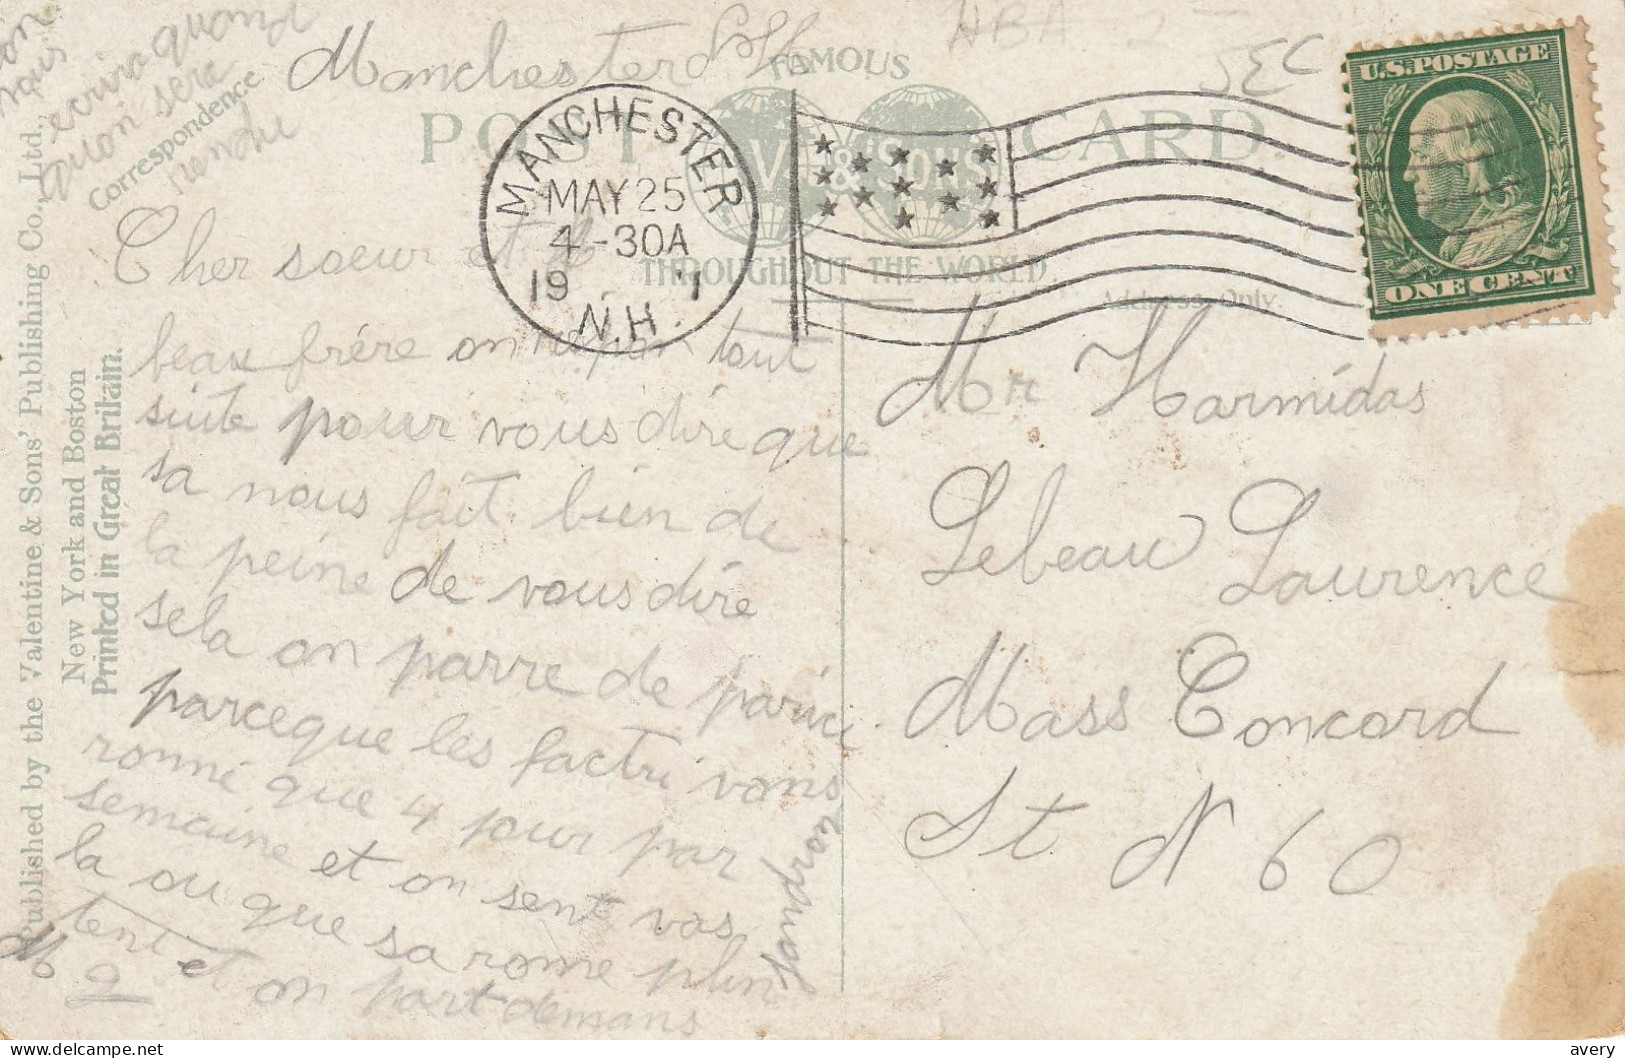 Manchester
écrira quand
quon sera
rendu
Correspondence
FAMOUS
POST CARD.
V & SONS
THROUGHOUT THE WORLD.
Address Only.
MANCHESTER
MAY 25
4-30A
19 1
N.H.
U.S. POSTAGE
ONE CENT
Cher soeur et
beau frére on tout
suite pour vous dire que
sa nous fait bien de
la peine de vous dire
sela on parre de
parceque les factri vons
ronné que 4 jour par
semaine et on sent vas
la ou que sa rome plin
tent et on part demans
Mr Harmidas
Lebeau Laurence
Mass Concord
St N 60
Published by the Valentine & Sons' Publishing Co., Ltd.,
New York and Boston
Printed in Great Britain.
avery